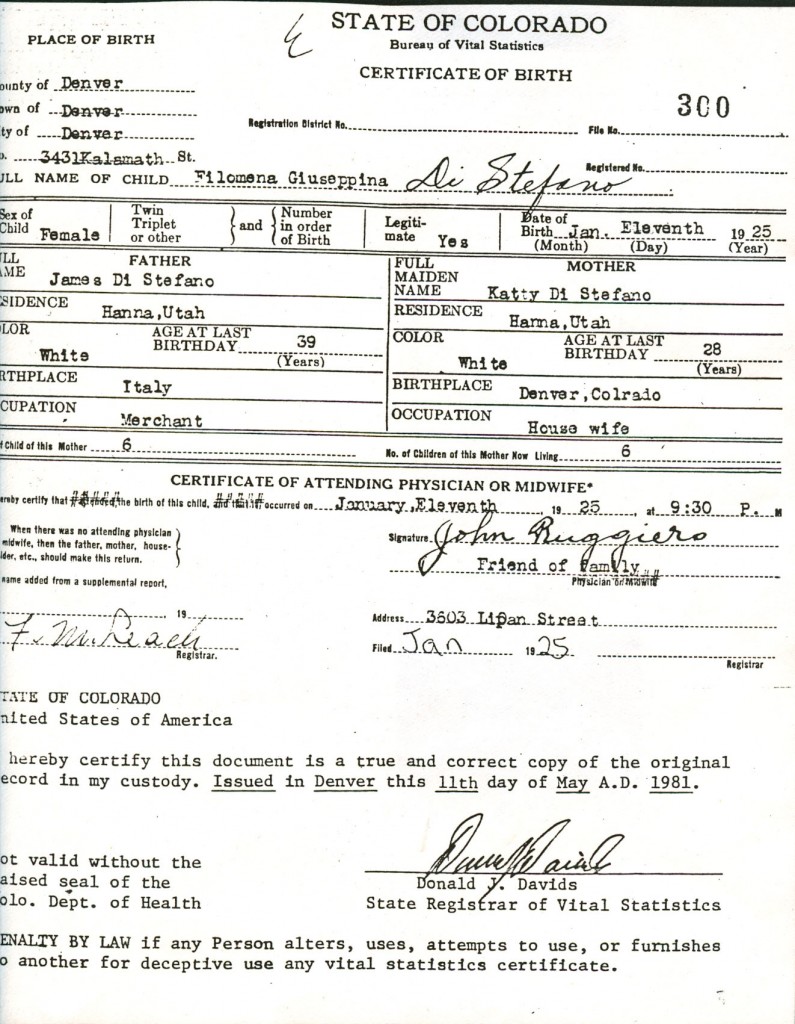 STATE OF COLORADO
Bureau of Vital Statistics
CERTIFICATE OF BIRTH
PLACE OF BIRTH
ounty of Denver
own of Denver
ty of Denver
3431 Kalamath St.
Registration District No.
300
File No.
Registered No.
ULL NAME OF CHILD Filomena Giuseppina Di Stefano
Sex of Child Female
Twin Triplet or other } and { Number in order of Birth
Legiti- mate Yes
Date of Birth Jan. Eleventh 1925
(Month) (Day) (Year)
ULL AME FATHER
James Di Stefano
SIDENCE
Hanna,Utah
LOR White AGE AT LAST BIRTHDAY 39
(Years)
RTHPLACE
Italy
CUPATION
Merchant
FULL MAIDEN NAME MOTHER
Katty Di Stefano
RESIDENCE
Hanna,Utah
COLOR White AGE AT LAST BIRTHDAY 28
(Years)
BIRTHPLACE
Denver,Colrado
OCCUPATION
House wife
Child of this Mother 6
No. of Children of this Mother Now Living 6
CERTIFICATE OF ATTENDING PHYSICIAN OR MIDWIFE*
ereby certify that the birth of this child, occurred on January,Eleventh, 1925, at 9:30 P. M
When there was no attending physician
midwife, then the father, mother, house-
lder, etc., should make this return.
Signature John Ruggiero
Friend of family
Physician or Midwife
ame added from a supplemental report,
19
F. M. Leach
Registrar.
Address 3603 Lipan Street
Filed Jan 1925
Registrar
TATE OF COLORADO
nited States of America
hereby certify this document is a true and correct copy of the original
ecord in my custody. Issued in Denver this 11th day of May A.D. 1981.
ot valid without the
aised seal of the
olo. Dept. of Health
Donald J. Davids
State Registrar of Vital Statistics
ENALTY BY LAW if any Person alters, uses, attempts to use, or furnishes
o another for deceptive use any vital statistics certificate.